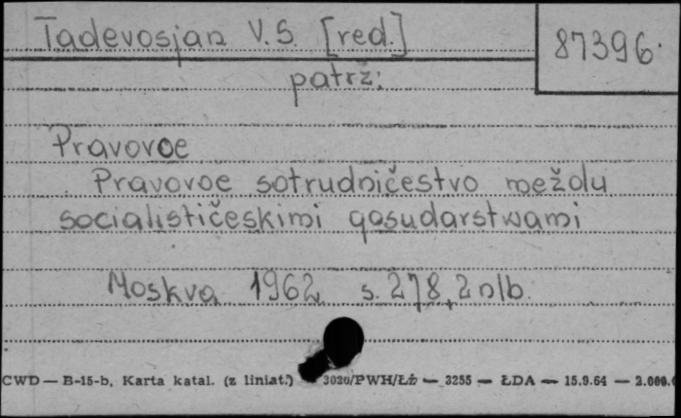 Tadevosjan V.S. [red.]
87396
patrz:
Pravovoe
Pravovoe sotrudničestvo meždu
socialističeskimi gosudarstwami
Moskva 1962 s. 278, 2 nlb.
CWD — B-15-b, Karta katal. (z liniat.) 3020/PWH/Łż — 3255 — ŁDA — 15.9.64 — 2.000.